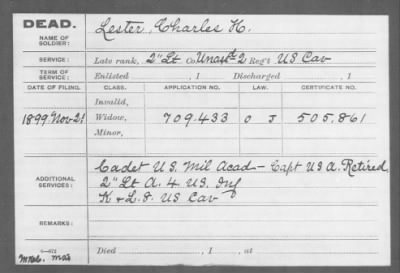 DEAD.
NAME OF SOLDIER: Lester, Charles H.
SERVICE: Late rank, 2" Lt Co Unas'd 2 Reg't US Cav
TERM OF SERVICE: Enlisted , 1 Discharged , 1
DATE OF FILING. CLASS. APPLICATION NO. LAW. CERTIFICATE NO.
Invalid,
1899 Nov 21 Widow, 709.433 O J 505.861
Minor,
ADDITIONAL SERVICES: Cadet U.S. Mil Acad - Capt US A. Retired
2" Lt A. 4 US. Inf
K & L. 8. US Cav
REMARKS:
Died , 1 , at